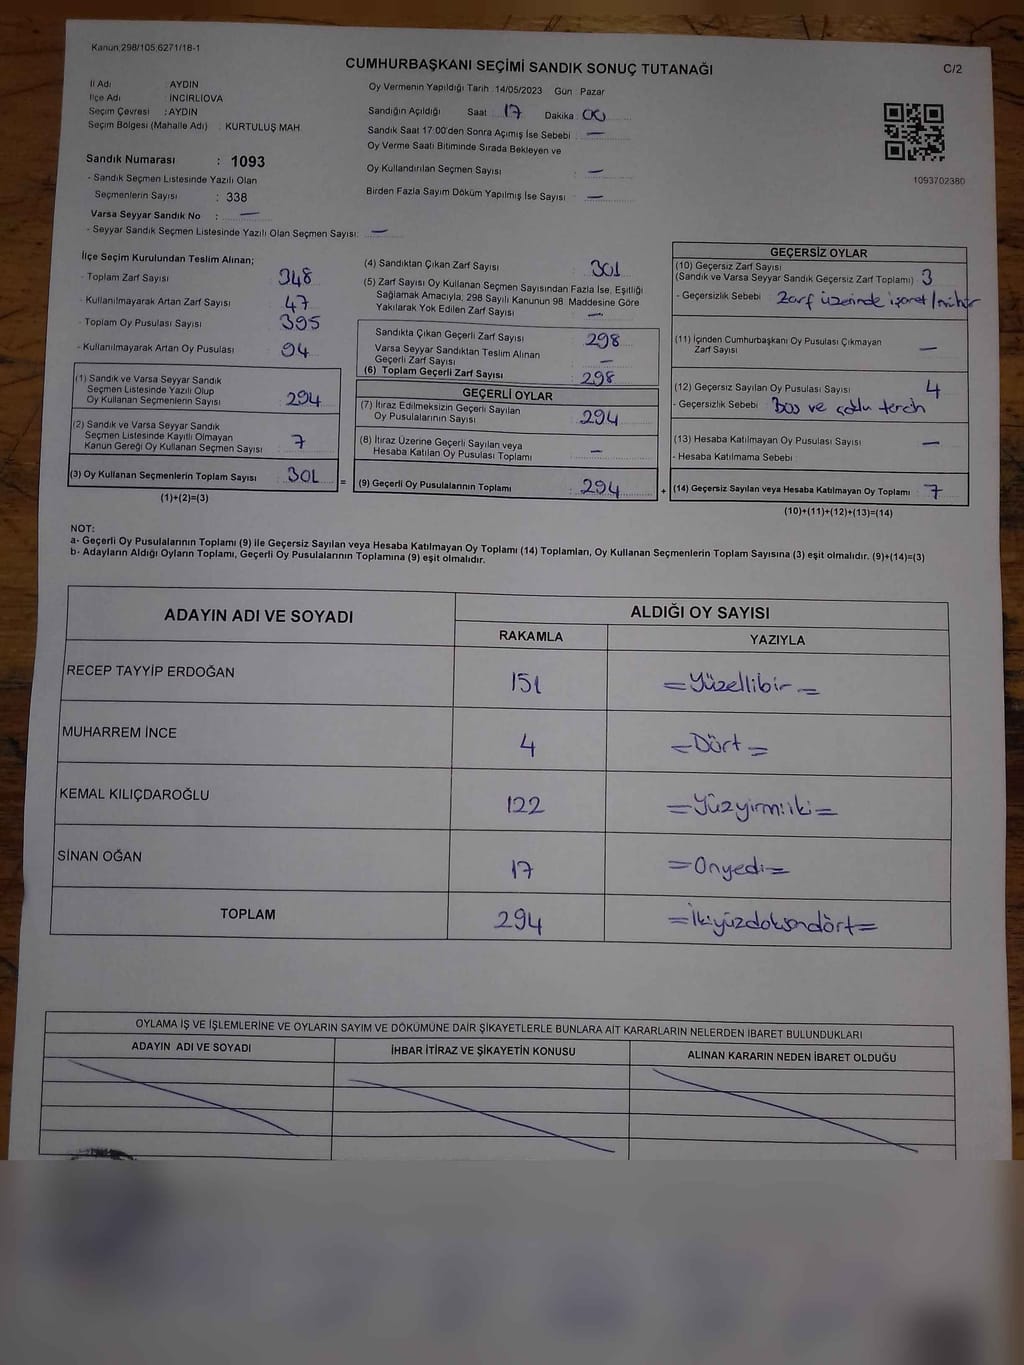 Kanun.298/105.6271/18-1
CUMHURBAŞKANI SEÇİMİ SANDIK SONUÇ TUTANAĞI
C/2
İl Adı : AYDIN
İlçe Adı İNCİRLİOVA
Seçim Çevresi : AYDIN
Seçim Bölgesi (Mahalle Adı) : KURTULUŞ MAH.
Sandık Numarası : 1093
- Sandık Seçmen Listesinde Yazılı Olan
Seçmenlerin Sayısı : 338
Varsa Seyyar Sandık No : —
- Seyyar Sandık Seçmen Listesinde Yazılı Olan Seçmen Sayısı: —
Oy Vermenin Yapıldığı Tarih :14/05/2023 Gün : Pazar
Sandığın Açıldığı Saat : 17 Dakika : 00
Sandık Saat 17:00'den Sonra Açımış İse Sebebi : —
Oy Verme Saati Bitiminde Sırada Bekleyen ve
Oy Kullandırılan Seçmen Sayısı : —
Birden Fazla Sayım Döküm Yapılmış İse Sayısı : —
1093702380
İlçe Seçim Kurulundan Teslim Alınan;
- Toplam Zarf Sayısı : 348
- Kullanılmayarak Artan Zarf Sayısı : 47
- Toplam Oy Pusulası Sayısı : 395
- Kullanılmayarak Artan Oy Pusulası : 94
(1) Sandık ve Varsa Seyyar Sandık
Seçmen Listesinde Yazılı Olup
Oy Kullanan Seçmenlerin Sayısı : 294
(2) Sandık ve Varsa Seyyar Sandık
Seçmen Listesinde Kayıtlı Olmayan
Kanun Gereği Oy Kullanan Seçmen Sayısı : 7
(3) Oy Kullanan Seçmenlerin Toplam Sayısı : 301
(1)+(2)=(3)
=
(4) Sandıktan Çıkan Zarf Sayısı : 301
(5) Zarf Sayısı Oy Kullanan Seçmen Sayısından Fazla İse, Eşitliği
Sağlamak Amacıyla, 298 Sayılı Kanunun 98. Maddesine Göre
Yakılarak Yok Edilen Zarf Sayısı : —
Sandıkta Çıkan Geçerli Zarf Sayısı : 298
Varsa Seyyar Sandıktan Teslim Alınan
Geçerli Zarf Sayısı : —
(6) Toplam Geçerli Zarf Sayısı : 298
GEÇERLİ OYLAR
(7) İtiraz Edilmeksizin Geçerli Sayılan
Oy Pusulalarının Sayısı : 294
(8) İtiraz Üzerine Geçerli Sayılan veya
Hesaba Katılan Oy Pusulası Toplamı : —
(9) Geçerli Oy Pusulalarının Toplamı : 294
+
GEÇERSİZ OYLAR
(10) Geçersiz Zarf Sayısı
(Sandık ve Varsa Seyyar Sandık Geçersiz Zarf Toplamı) : 3
- Geçersizlik Sebebi : Zarf üzerinde işaret/mühür
(11) İçinden Cumhurbaşkanı Oy Pusulası Çıkmayan
Zarf Sayısı : —
(12) Geçersiz Sayılan Oy Pusulası Sayısı : 4
- Geçersizlik Sebebi : Boş ve çoklu tercih
(13) Hesaba Katılmayan Oy Pusulası Sayısı : —
- Hesaba Katılmama Sebebi :
(14) Geçersiz Sayılan veya Hesaba Katılmayan Oy Toplamı : 7
(10)+(11)+(12)+(13)=(14)
NOT:
a- Geçerli Oy Pusulalarının Toplamı (9) ile Geçersiz Sayılan veya Hesaba Katılmayan Oy Toplamı (14) Toplamları, Oy Kullanan Seçmenlerin Toplam Sayısına (3) eşit olmalıdır. (9)+(14)=(3)
b- Adayların Aldığı Oyların Toplamı, Geçerli Oy Pusulalarının Toplamına (9) eşit olmalıdır.
ADAYIN ADI VE SOYADI ALDIĞI OY SAYISI
RAKAMLA YAZIYLA
RECEP TAYYİP ERDOĞAN 151 =Yüzellibir=
MUHARREM İNCE 4 =Dört=
KEMAL KILIÇDAROĞLU 122 =Yüzyirmiiki=
SİNAN OĞAN 17 =Onyedi=
TOPLAM 294 =İkiyüzdoksandört=
OYLAMA İŞ VE İŞLEMLERİNE VE OYLARIN SAYIM VE DÖKÜMÜNE DAİR ŞİKAYETLERLE BUNLARA AİT KARARLARIN NELERDEN İBARET BULUNDUKLARI
ADAYIN ADI VE SOYADI İHBAR İTİRAZ VE ŞİKAYETİN KONUSU ALINAN KARARIN NEDEN İBARET OLDUĞU